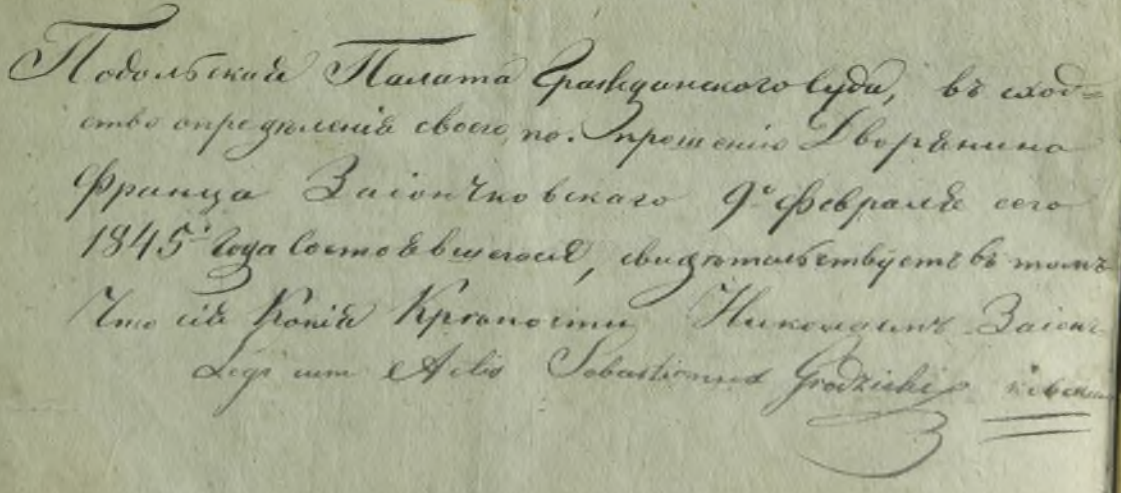 Подольская Палата Гражданского Суда, въ сход=
ство определенія своего, по прошенію Дворянина
Франца Заіончковскаго 9го Февраля сего
1845го Года Состоявшегося, свидѣтельствуетъ въ томъ
Что сія Копія Крѣпости Никодимъ Заіонч-
Legi cum Actis Sebastianus Grodzicki